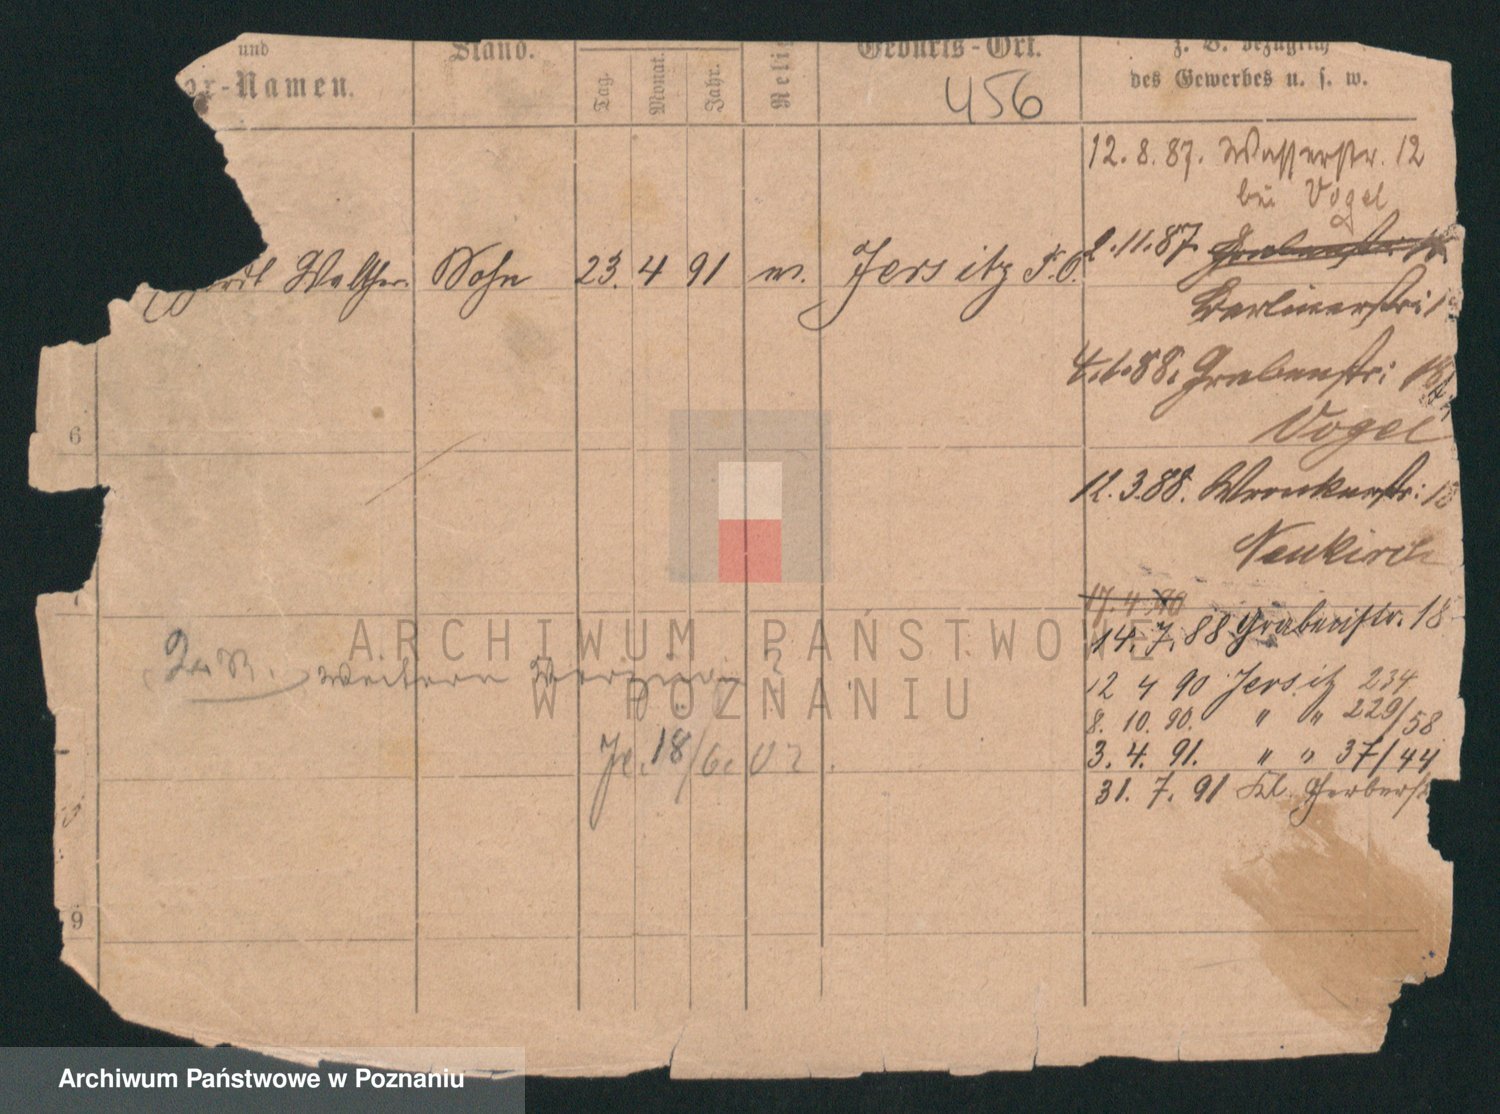 und
Vor-Namen.
Stand.
Tag.
Monat.
Jahr.
Relig
Geburts-Ort.
z. B. bezüglich
des Gewerbes u. s. w.
456
12. 8. 87. Wasserstr. 12
bei Vogel
2. 11. 87. Grabenstr. 18.
Walther Sohn 23. 4 91 Jersitz P. O.
Berlinerstr: 1
4. 1. 88. Grabenstr: 18
Vogel
6
12. 3. 88. Wronkerstr: 18
Neukirch
17. 4. 90
14. 7. 88 Grabenstr. 18
weitern
12 4 90 Jersitz 234
8. 10. 90. " " 229/58
3. 4. 91. " " 37/44
31. 7. 91 Kl. Gerberst
18/6. 02.
9
ARCHIWUM PAŃSTWOWE
W POZNANIU
Archiwum Państwowe w Poznaniu